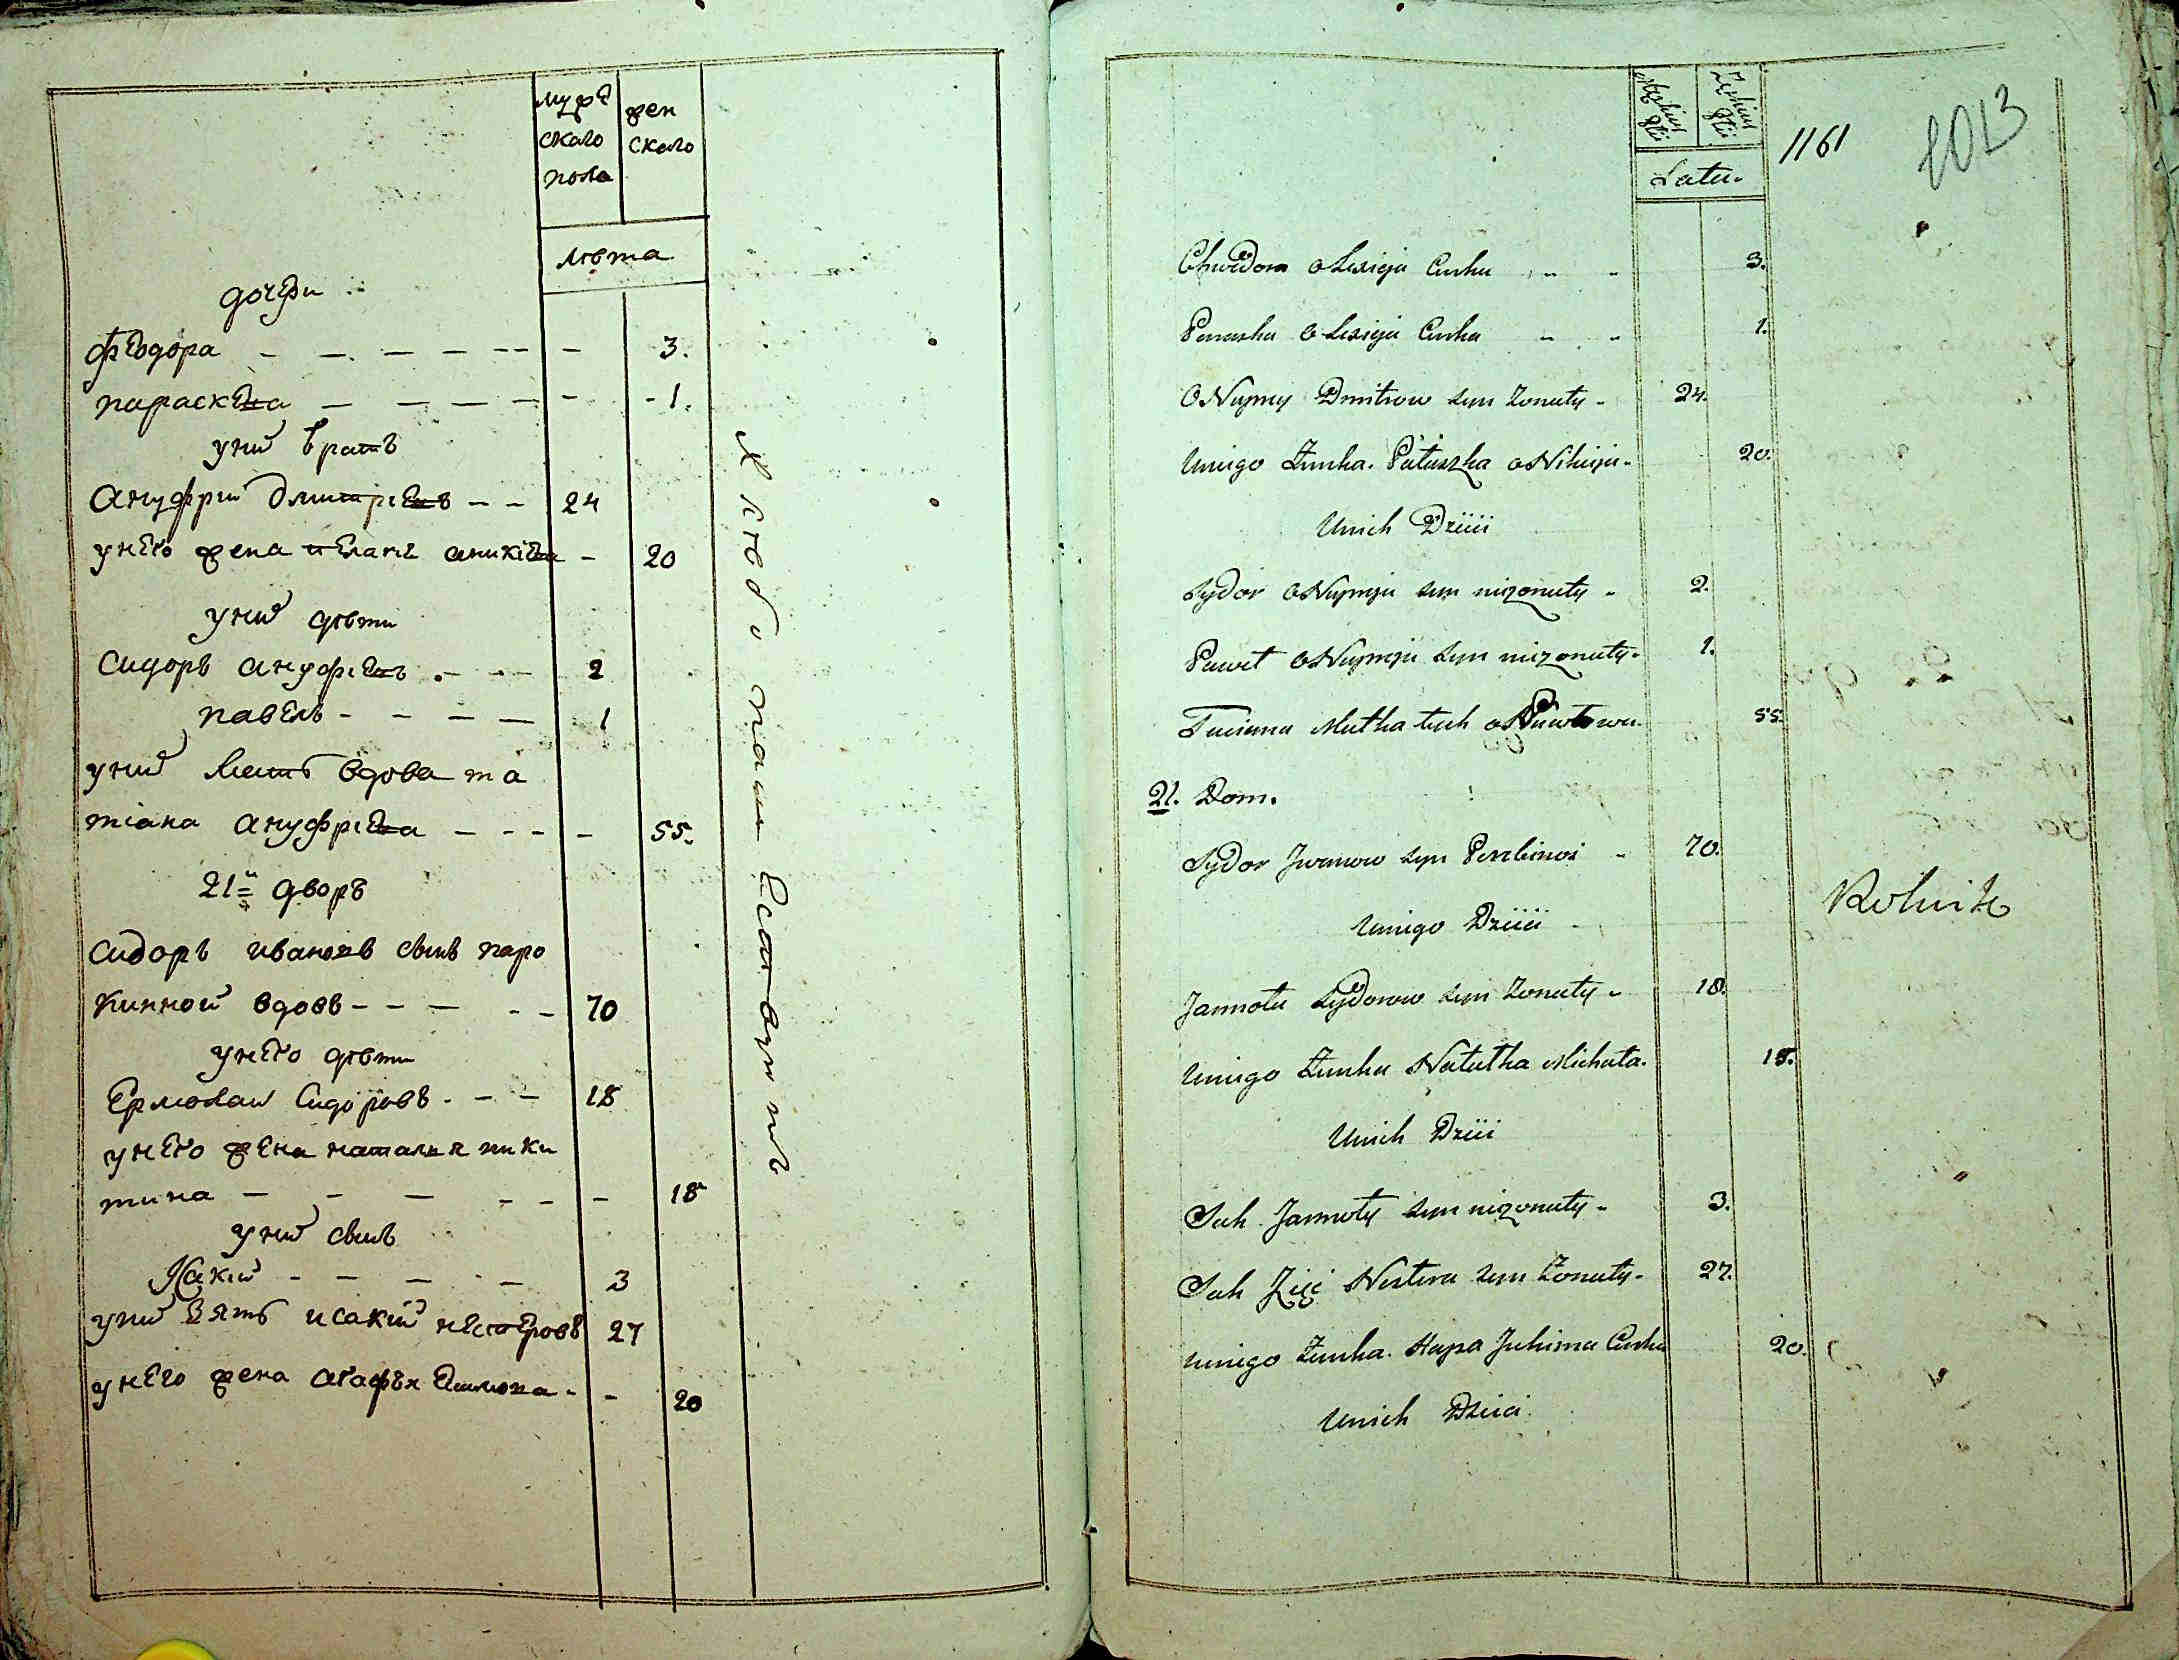 мужескаго пола
женскаго
лѣта
дочери
Феодора 3.
параскева 1.
унихъ братъ
Ануфрий Дмитриевъ 24
унего жена пелагея аникіева 20
унихъ дѣти
Сидоръ ануфриевъ 2
павелъ 1
унихъ мать вдова та
тіана ануфриева 55.
21й дворъ
Сидоръ ивановъ сынъ паро
кинной вдовъ 70
унего дѣти
Ермолай Сидоровъ 18
унего жена наталья ники
тина 18
унихъ сынъ
Исакий 3
унихъ зять исакий нестеровъ 27
унего жена агафья 20
хлебопашествуютъ
Męskiej Płci
Żeńskiej Płci
Lata
1161
1013
Chwedora Olexieja Curka 3.
Paraska Olexieja Curka 1.
ONuprey Dmitrow syn Zonaty 24.
Uniego Zonka Pałaszka oNikieja 20.
Unich Dzieci
Sydor ONupreja syn niezonaty 2.
Paweł ONupreja syn niezonaty 1.
Taciana Matka tych 55.
21. Dom.
Sydor Jwanow syn 70.
Rolnik
Uniego Dzieci
Jarmoła Sydorow syn Zonaty 18.
Uniego Zonka Natałka Michała 18.
Unich Dzieci
Sak Jarmoły syn niezonaty 3.
Sak Zięć Nestera syn Zonaty 27.
Uniego Zonka Hapa Juhima Curka 20.
Unich Dzieci